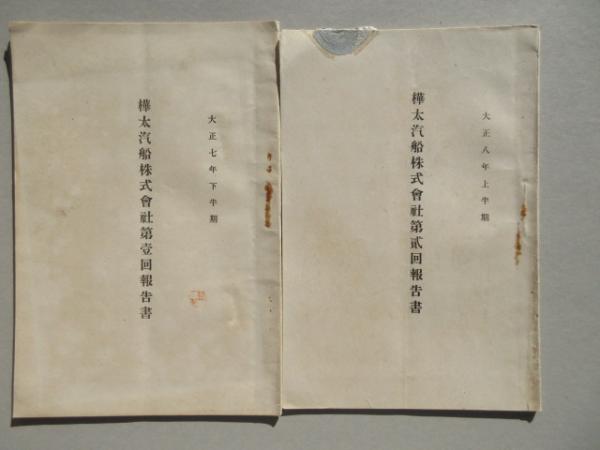 大正七年下半期
樺太汽船株式會社第壹回報告書
大正八年上半期
樺太汽船株式會社第貳回報告書